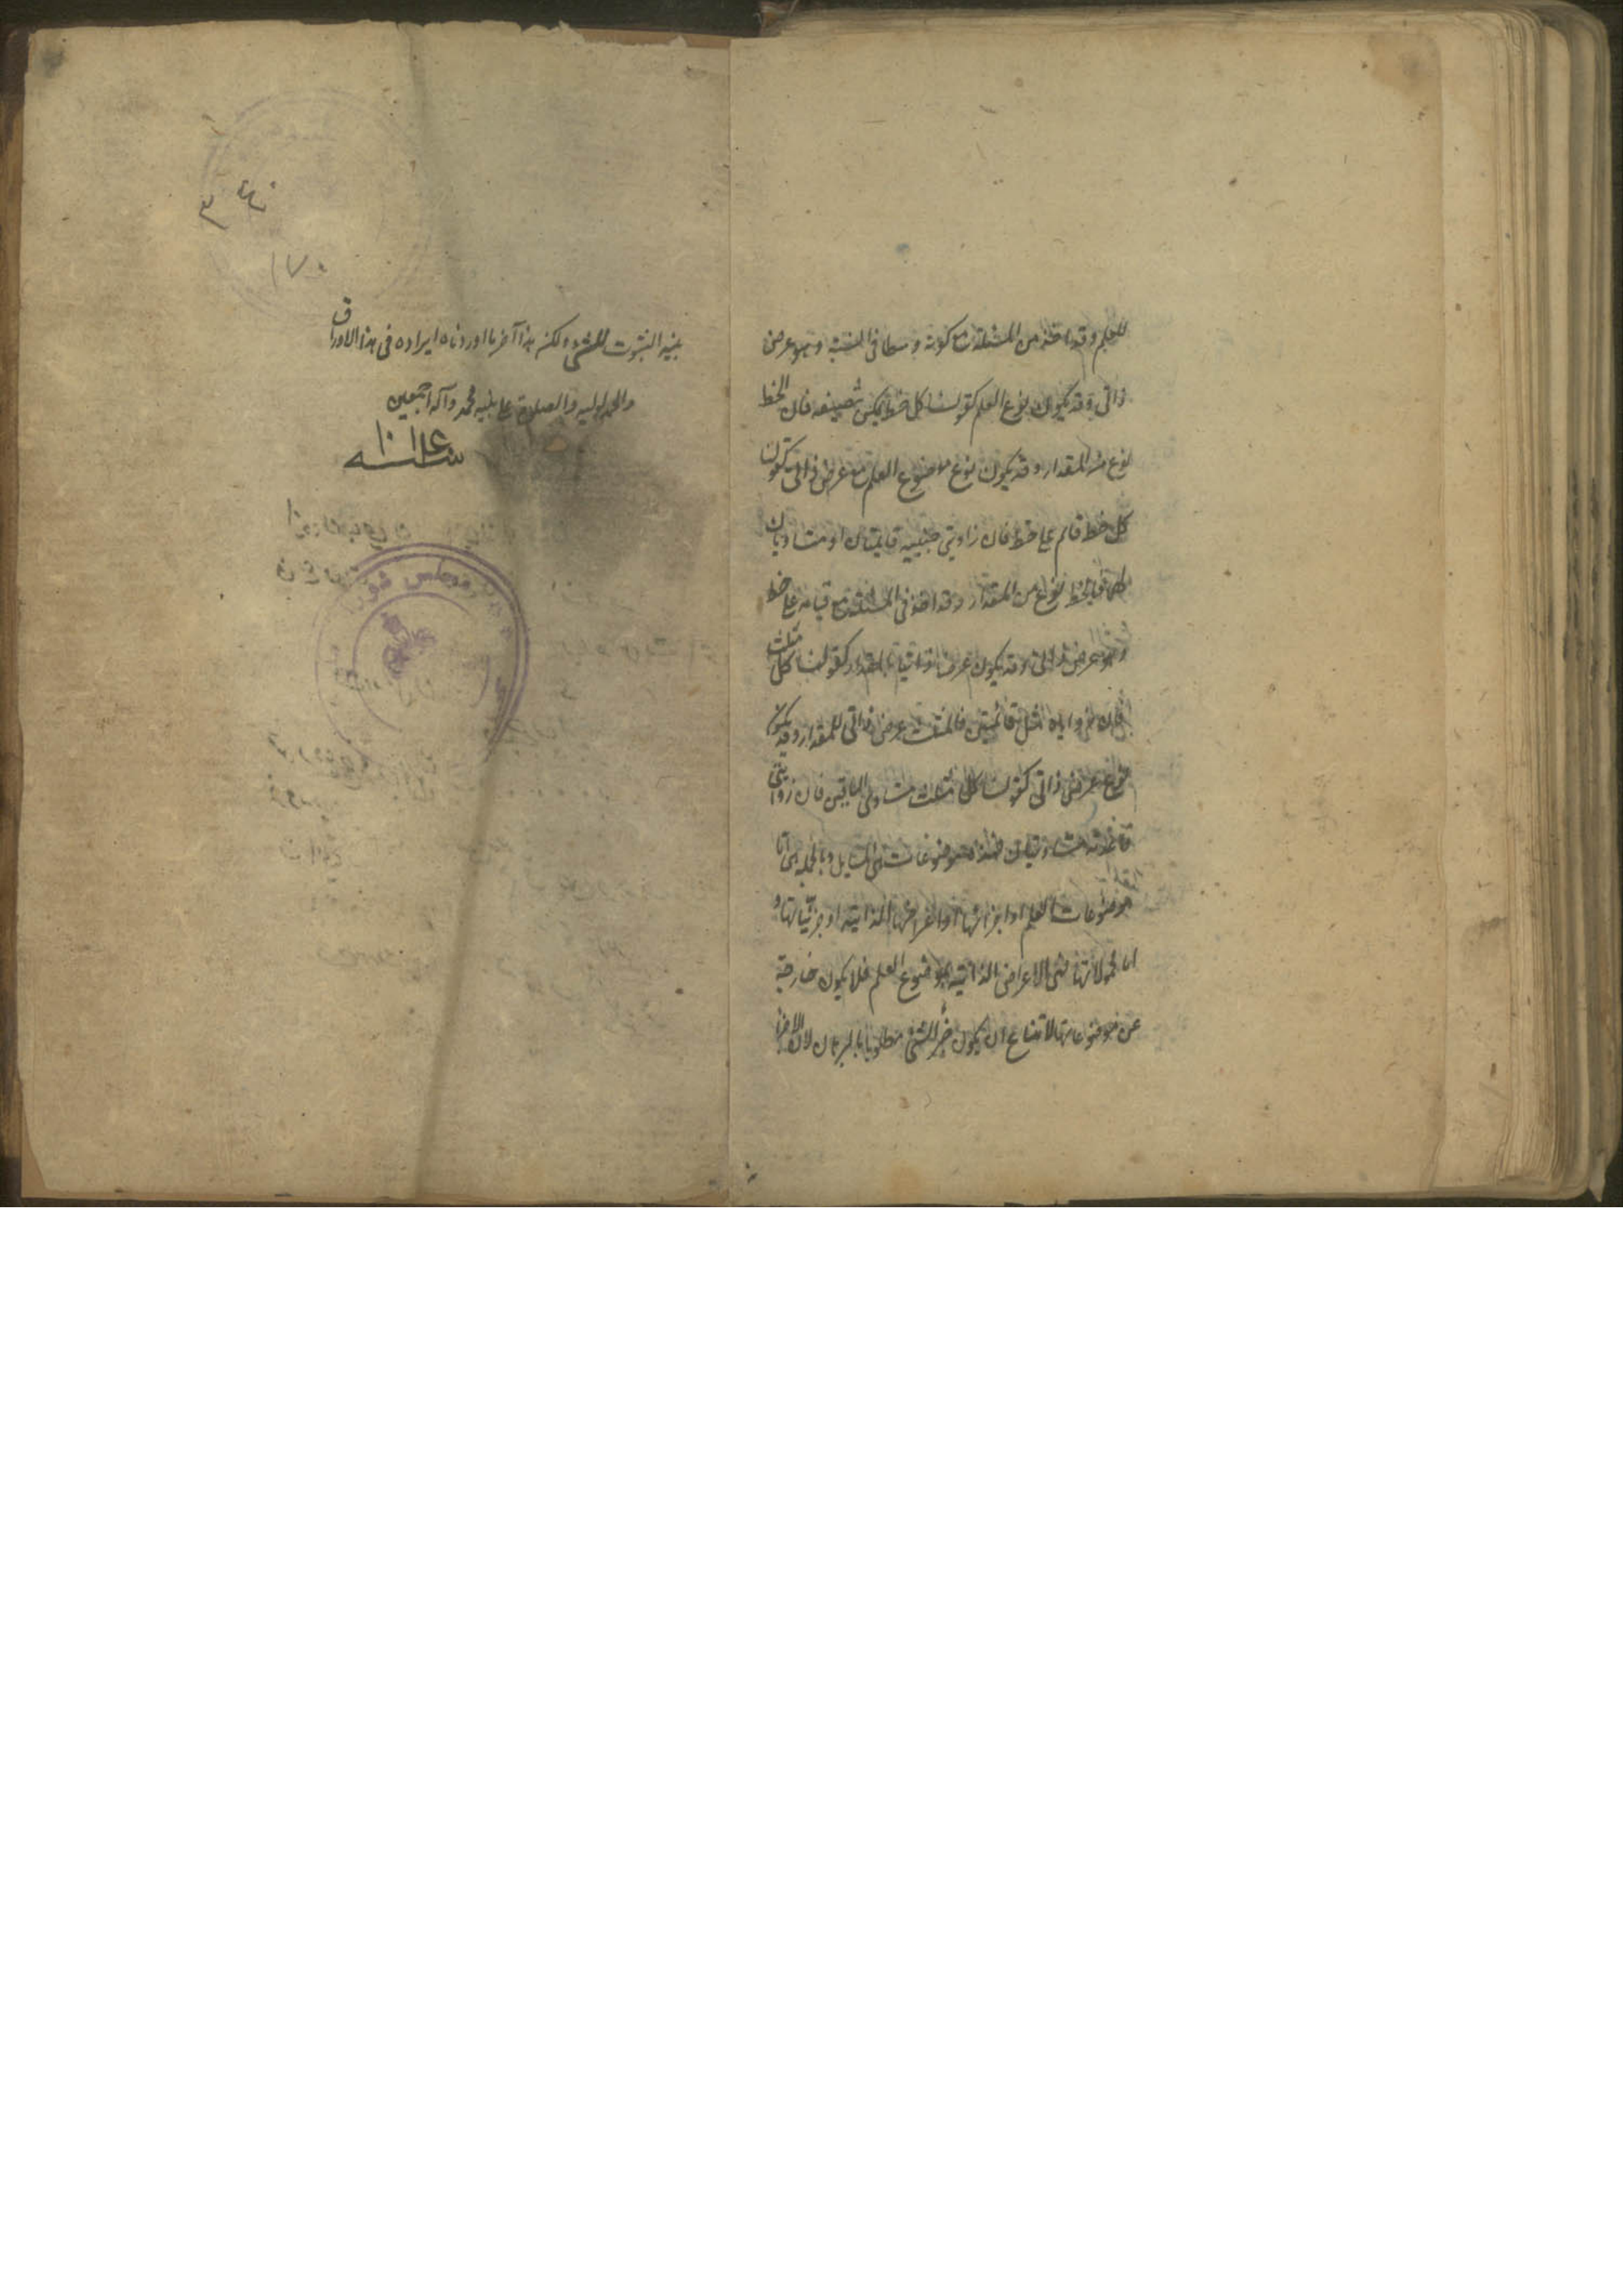 للعلم وقد اخذ من المسئلة مع كونه وسطا فى النسبة وهو عرض
ذاتى وقد يكون نوع العلم كقولنا كل خط يمكن تنصيفه فان الخط
نوع من المقدار وقد يكون نوع موضوع العلم مع عرض ذاتى كقولنا
كل خط قائم على خط فان زاويتى جنبيه قائمتان او متساويتان
لهما فالخط نوع من المقدار وقد اخذ فى المسئلة مع قيامه على خط
وهو عرض ذاتى وقد يكون عرضا ذاتيا بالمقدار كقولنا كل مثلث
فان زواياه مثل قائمتين فالمثلث عرض ذاتى للمقدار وقد يكون
نوع عرض ذاتى كقولنا كل مثلث متساوى الساقين فان زاويتى
قاعدته متساويتان فهذه موضوعات المسايل وبالجملة هى اما
موضوعات العلم او اجزائها او اعراضها الذاتية او جزئياتها و
اما محمولاتها فهى الاعراض الذاتية لموضوع العلم فلا يكون خارجة
عن موضوعاتها لامتناع ان يكون جزء الشئ مطلوبا بالبرهان لان الاجزاء
بينة الثبوت للشئ ولكن هذا آخر ما اوردناه ايراده فى هذا الاوراق
والحمد لوليه والصلاة على نبيه محمد وآله اجمعين
١٧٠